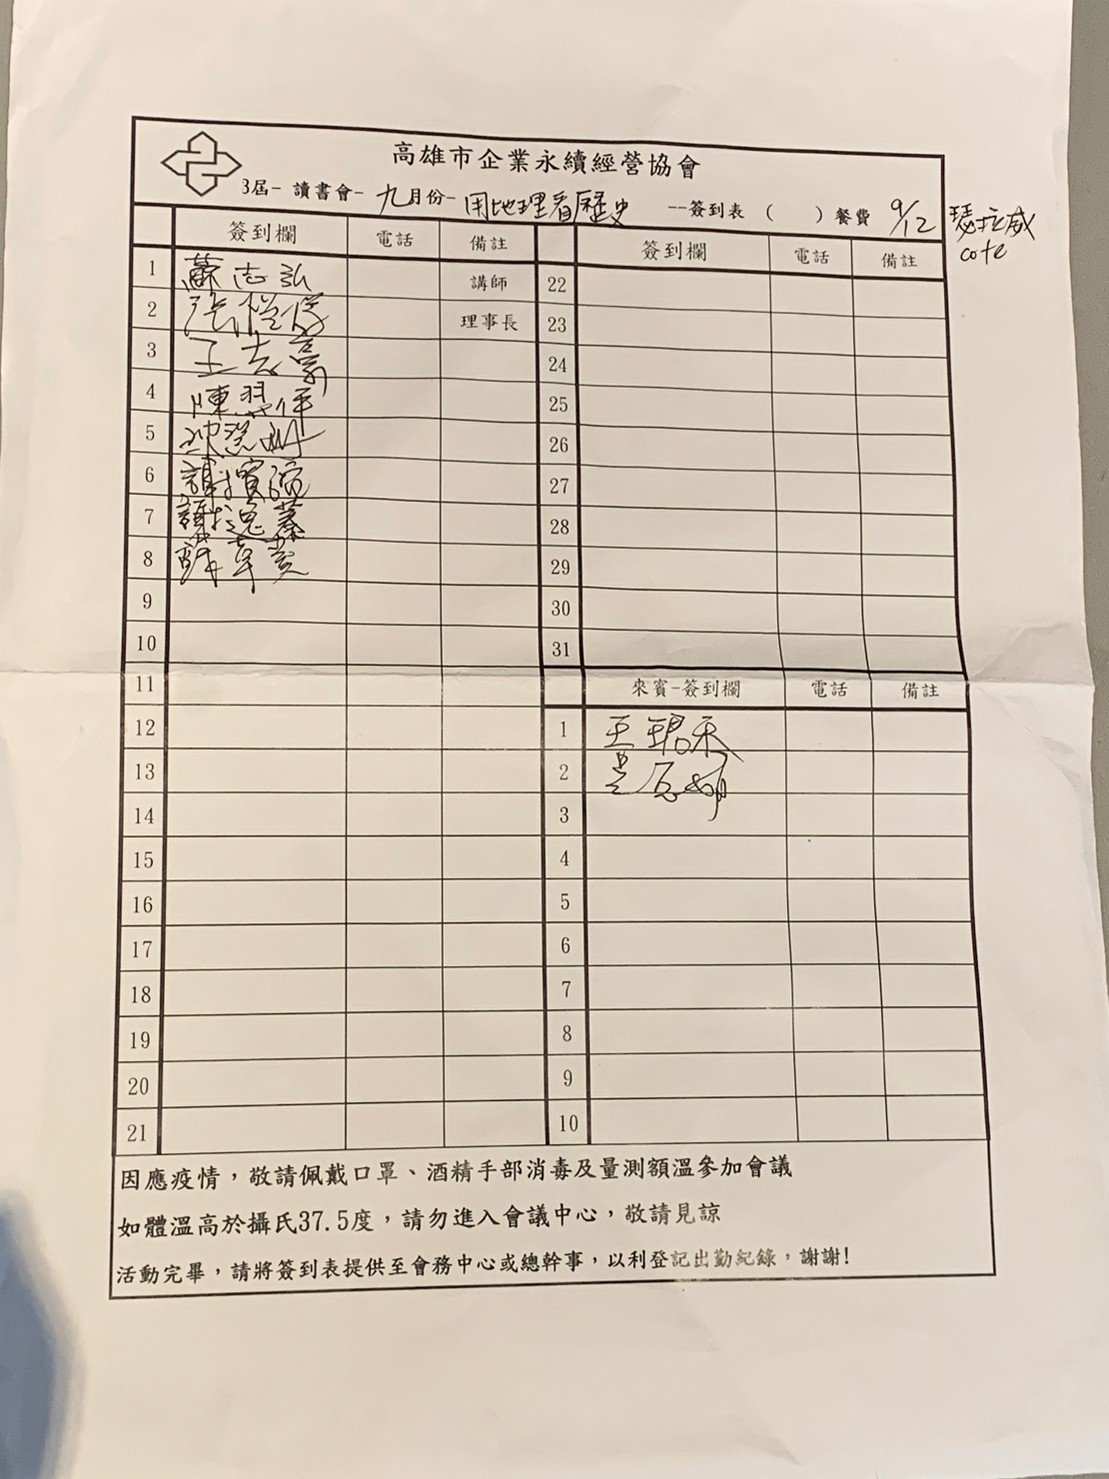 高雄市企業永續經營協會
3屆- 讀書會- 九月份- 用地理看歷史 --簽到表 ( ) 餐費 9/12 瑟拉威
cote
簽到欄 電話 備註 簽到欄 電話 備註
1 蘇志弘 講師 22
2 理事長 23
3 王志豪 24
4 陳 25
5 26
6 謝寶 27
7 謝 28
8 29
9 30
10 31
11 來賓-簽到欄 電話 備註
12 1 王珺禾
13 2
14 3
15 4
16 5
17 6
18 7
19 8
20 9
21 10
因應疫情，敬請佩戴口罩、酒精手部消毒及量測額溫參加會議
如體溫高於攝氏37.5度，請勿進入會議中心，敬請見諒
活動完畢，請將簽到表提供至會務中心或總幹事，以利登記出勤紀錄，謝謝!